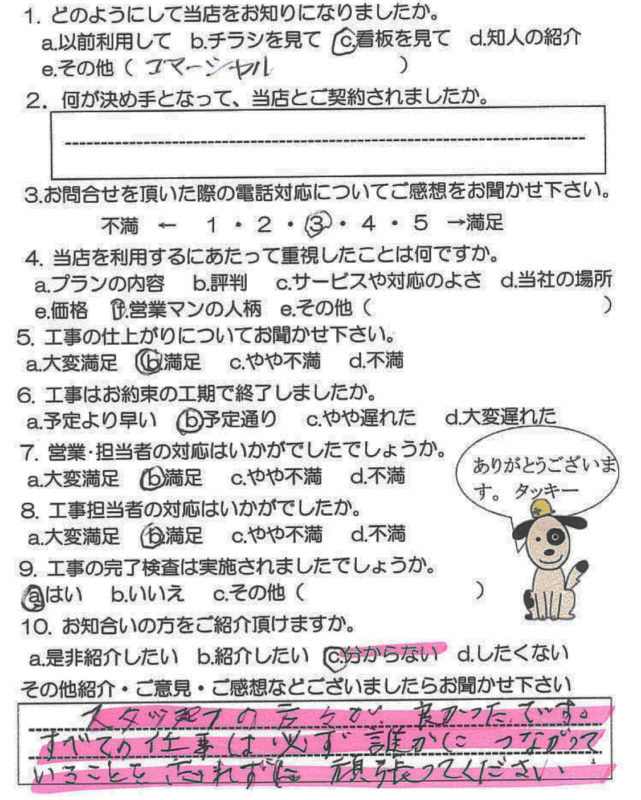 1. どのようにして当店をお知りになりましたか。
a.以前利用して b.チラシを見て c.看板を見て d.知人の紹介
e.その他（ コマーシャル ）
2. 何が決め手となって、当店とご契約されましたか。
3.お問合せを頂いた際の電話対応についてご感想をお聞かせ下さい。
不満 ← 1・2・3・4・5 →満足
4. 当店を利用するにあたって重視したことは何ですか。
a.プランの内容 b.評判 c.サービスや対応のよさ d.当社の場所
e.価格 f.営業マンの人柄 e.その他（ ）
5. 工事の仕上がりについてお聞かせ下さい。
a.大変満足 b.満足 c.やや不満 d.不満
6. 工事はお約束の工期で終了しましたか。
a.予定より早い b.予定通り c.やや遅れた d.大変遅れた
7. 営業・担当者の対応はいかがでしたでしょうか。
a.大変満足 b.満足 c.やや不満 d.不満
ありがとうございま
す。 タッキー
8. 工事担当者の対応はいかがでしたか。
a.大変満足 b.満足 c.やや不満 d.不満
9. 工事の完了検査は実施されましたでしょうか。
a.はい b.いいえ c.その他（ ）
10. お知合いの方をご紹介頂けますか。
a.是非紹介したい b.紹介したい c.分からない d.したくない
その他紹介・ご意見・ご感想などございましたらお聞かせ下さい
スタッフの方々が 良かったです。
すべての仕事は必ず誰かにつながって
いることを忘れずに 頑張ってください